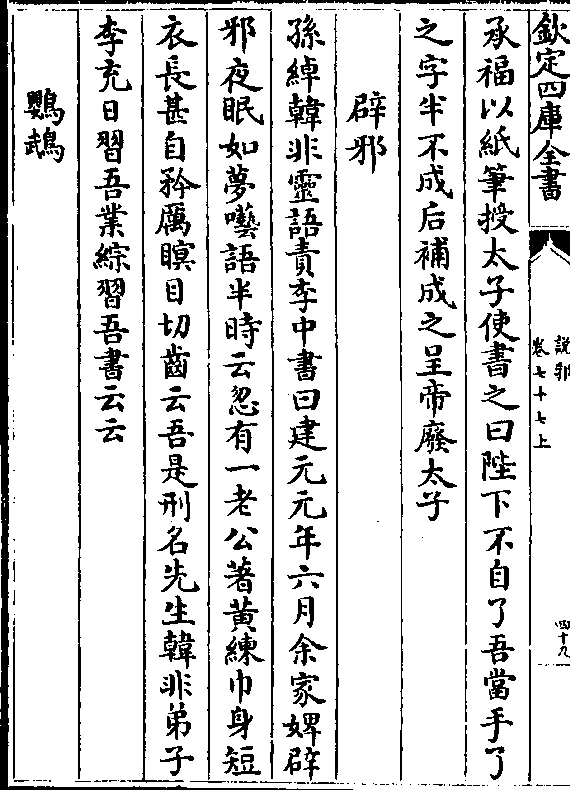 欽定四庫全書
說郛
卷七十七上
四十九
承福以紙筆授太子使書之曰陛下不自了吾當手了
之字半不成后補成之呈帝廢太子
辟邪
孫綽韓非靈語責李中書曰建元元年六月余家婢辟
邪夜眠如夢囈語半時云忽有一老公著黃練巾身短
衣長甚自矜厲瞑目切齒云吾是刑名先生韓非弟子
李充日習吾業綜習吾書云云
鸚鵡